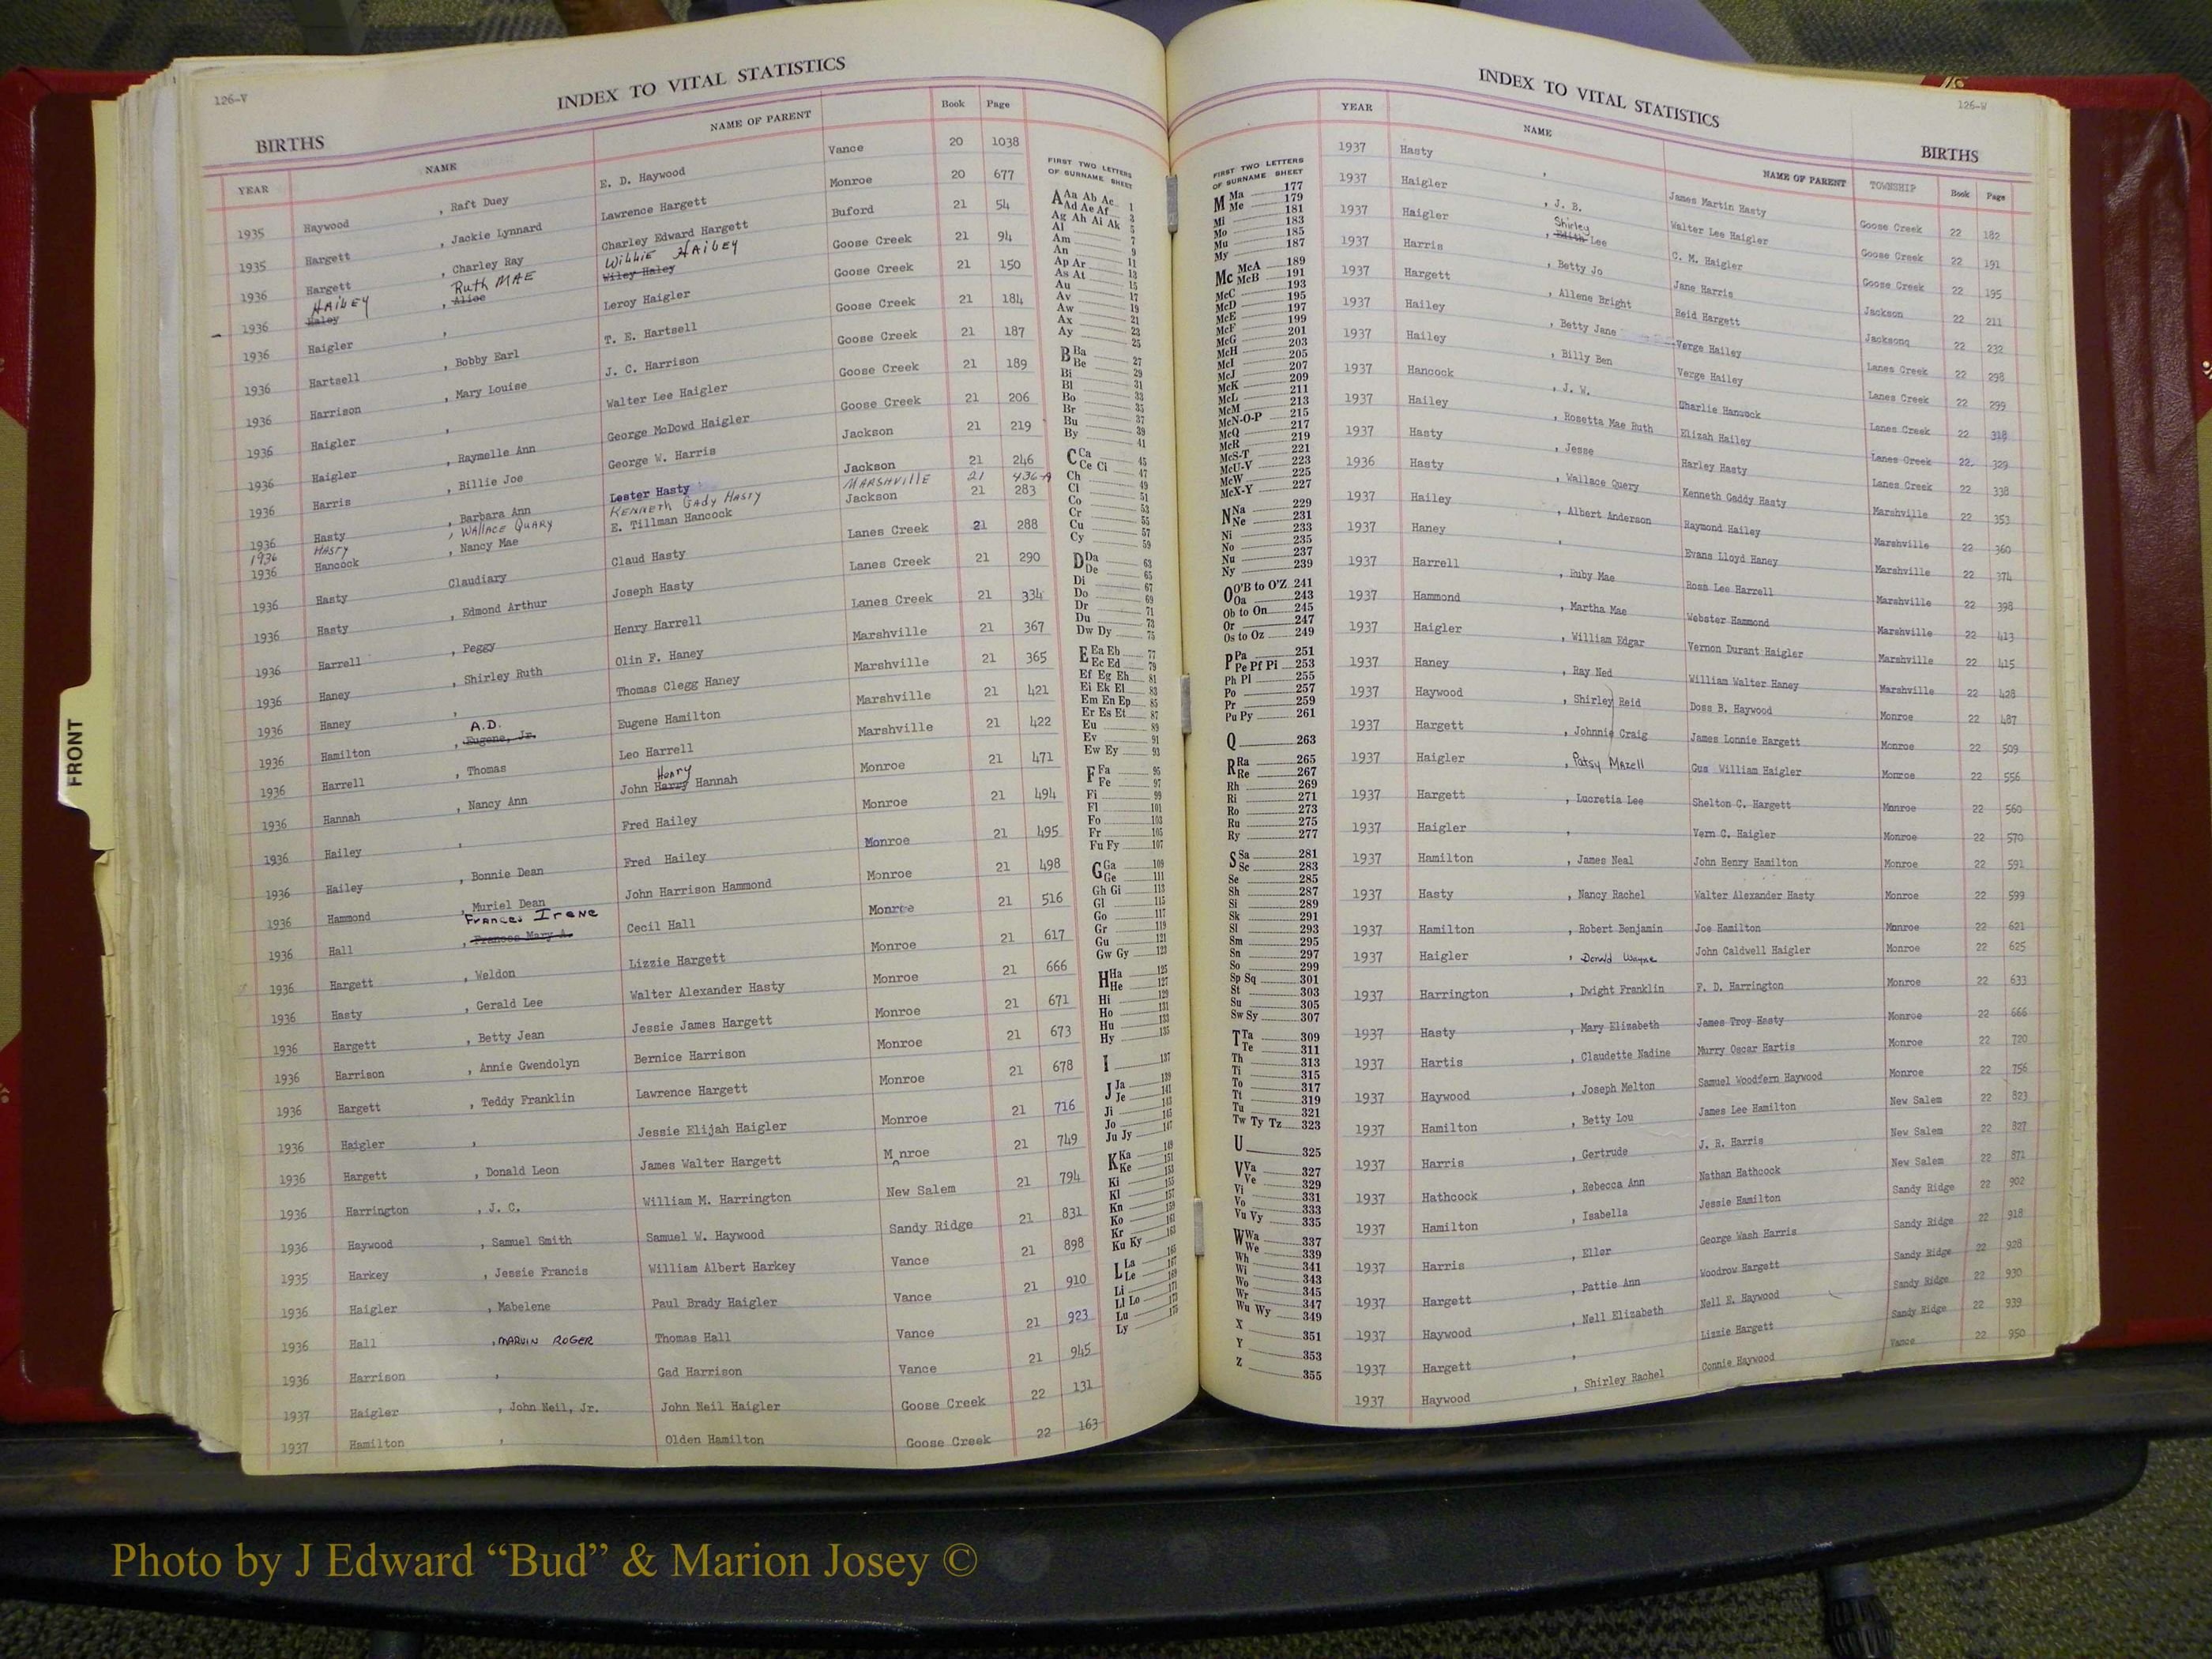 126-V
INDEX TO VITAL STATISTICS
BIRTHS
YEAR NAME NAME OF PARENT Book Page
1935 Haywood , Raft Duey E. D. Haywood Vance 20 1038
1935 Hargett , Jackie Lynnard Lawrence Hargett Monroe 20 677
1936 Hargett , Charley Ray Charley Edward Hargett Buford 21 54
HAILEY Ruth MAE Willie HAILEY
1936 Haley , Alice Wiley Haley Goose Creek 21 94
1936 Haigler , Leroy Haigler Goose Creek 21 150
1936 Hartsell , Bobby Earl T. E. Hartsell Goose Creek 21 184
1936 Harrison , Mary Louise J. C. Harrison Goose Creek 21 187
1936 Haigler , Walter Lee Haigler Goose Creek 21 189
1936 Haigler , Raymelle Ann George McDowd Haigler Goose Creek 21 206
1936 Harris , Billie Joe George W. Harris Jackson 21 219
1936 Hasty , Barbara Ann Lester Hasty Jackson 21 246
1936 HASTY , WALLACE QUARY KENNETH GADY HASTY MARSHVILLE 21 436-A
1936 Hancock , Nancy Mae E. Tillman Hancock Jackson 21 283
1936 Hasty Claudiary Claud Hasty Lanes Creek 21 288
1936 Hasty , Edmond Arthur Joseph Hasty Lanes Creek 21 290
1936 Harrell , Peggy Henry Harrell Lanes Creek 21 334
1936 Haney , Shirley Ruth Olin F. Haney Marshville 21 367
1936 Haney , Thomas Clegg Haney Marshville 21 365
A.D.
1936 Hamilton , Eugene, Jr. Eugene Hamilton Marshville 21 421
1936 Harrell , Thomas Leo Harrell Marshville 21 422
Henry
1936 Hannah , Nancy Ann John Harry Hannah Monroe 21 471
1936 Hailey , Fred Hailey Monroe 21 494
1936 Hailey , Bonnie Dean Fred Hailey Monroe 21 495
1936 Hammond , Muriel Dean John Harrison Hammond Monroe 21 498
Frances Irene
1936 Hall , Frances Mary A. Cecil Hall Monroe 21 516
1936 Hargett , Weldon Lizzie Hargett Monroe 21 617
1936 Hasty , Gerald Lee Walter Alexander Hasty Monroe 21 666
1936 Hargett , Betty Jean Jessie James Hargett Monroe 21 671
1936 Harrison , Annie Gwendolyn Bernice Harrison Monroe 21 673
1936 Hargett , Teddy Franklin Lawrence Hargett Monroe 21 678
1936 Haigler , Jessie Elijah Haigler Monroe 21 716
1936 Hargett , Donald Leon James Walter Hargett M nroe 21 749
1936 Harrington , J. C. William M. Harrington New Salem 21 794
1936 Haywood , Samuel Smith Samuel W. Haywood Sandy Ridge 21 831
1935 Harkey , Jessie Francis William Albert Harkey Vance 21 898
1936 Haigler , Mabelene Paul Brady Haigler Vance 21 910
1936 Hall , MARVIN ROGER Thomas Hall Vance 21 923
1936 Harrison , Gad Harrison Vance 21 945
1937 Haigler , John Neil, Jr. John Neil Haigler Goose Creek 22 131
1937 Hamilton , Olden Hamilton Goose Creek 22 163
FIRST TWO LETTERS
OF SURNAME SHEET
A Aa Ab Ac 1
Ad Ae Af 3
Ag Ah Ai Ak 5
Al 7
Am 9
An 11
Ap Ar 13
As At 15
Au 17
Av 19
Aw 21
Ax 23
Ay 25
B Ba 27
Be 29
Bi 31
Bl 33
Bo 35
Br 37
Bu 39
By 41
C Ca 45
Ce Ci 47
Ch 49
Cl 51
Co 53
Cr 55
Cu 57
Cy 59
D Da 63
De 65
Di 67
Do 69
Dr 71
Du 73
Dw Dy 75
E Ea Eb 77
Ec Ed 79
Ef Eg Eh 81
Ei Ek El 83
Em En Ep 85
Er Es Et 87
Eu 89
Ev 91
Ew Ey 93
F Fa 95
Fe 97
Fi 99
Fl 101
Fo 103
Fr 105
Fu Fy 107
G Ga 109
Ge 111
Gh Gi 113
Gl 115
Go 117
Gr 119
Gu 121
Gw Gy 123
H Ha 125
He 127
Hi 129
Ho 131
Hu 133
Hy 135
I 137
J Ja 139
Je 141
Ji 143
Jo 145
Ju Jy 147
K Ka 149
Ke 151
Ki 153
Kl 155
Kn 157
Ko 159
Kr 161
Ku Ky 163
L La 165
Le 167
Li 169
Ll Lo 171
Lu 173
Ly 175
FRONT
126-W
INDEX TO VITAL STATISTICS
BIRTHS
YEAR NAME NAME OF PARENT TOWNSHIP Book Page
FIRST TWO LETTERS
OF SURNAME SHEET
M Ma 177
Me 179
Mi 181
Mo 183
Mu 185
My 187
Mc McA 189
McB 191
McC 193
McD 195
McE 197
McF 199
McG 201
McH 203
McI 205
McJ 207
McK 209
McL 211
McM 213
McN-O-P 215
McQ 217
McR 219
McS-T 221
McU-V 223
McW 225
McX-Y 227
N Na 229
Ne 231
Ni 233
No 235
Nu 237
Ny 239
O O'B to O'Z 241
Oa 243
Ob to On 245
Or 247
Os to Oz 249
P Pa 251
Pe Pf Pi 253
Ph Pl 255
Po 257
Pr 259
Pu Py 261
Q 263
R Ra 265
Re 267
Rh 269
Ri 271
Ro 273
Ru 275
Ry 277
S Sa 281
Sc 283
Se 285
Sh 287
Si 289
Sk 291
Sl 293
Sm 295
Sn 297
So 299
Sp Sq 301
St 303
Su 305
Sw Sy 307
T Ta 309
Te 311
Th 313
Ti 315
To 317
Tt 319
Tu 321
Tw Ty Tz 323
U 325
V Va 327
Ve 329
Vi 331
Vo 333
Vu Vy 335
W Wa 337
We 339
Wh 341
Wi 343
Wo 345
Wr 347
Wu Wy 349
X 351
Y 353
Z 355
1937 Hasty , James Martin Hasty Goose Creek 22 182
1937 Haigler , J. B. Walter Lee Haigler Goose Creek 22 191
Shirley
1937 Haigler , Edith Lee C. M. Haigler Goose Creek 22 195
1937 Harris , Betty Jo Jane Harris Jackson 22 211
1937 Hargett , Allene Bright Reid Hargett Jacksonq 22 232
1937 Hailey , Betty Jane Verge Hailey Lanes Creek 22 298
1937 Hailey , Billy Ben Verge Hailey Lanes Creek 22 299
1937 Hancock , J. W. Charlie Hancock Lanes Creek 22 318
1937 Hailey , Rosetta Mae Ruth Elizah Hailey Lanes Creek 22 329
1937 Hasty , Jesse Harley Hasty Lanes Creek 22 338
1936 Hasty , Wallace Query Kenneth Gaddy Hasty Marshville 22 353
1937 Hailey , Albert Anderson Raymond Hailey Marshville 22 360
1937 Haney , Evans Lloyd Haney Marshville 22 374
1937 Harrell , Ruby Mae Rosa Lee Harrell Marshville 22 398
1937 Hammond , Martha Mae Webster Hammond Marshville 22 413
1937 Haigler , William Edgar Vernon Durant Haigler Marshville 22 415
1937 Haney , Ray Ned William Walter Haney Marshville 22 428
1937 Haywood , Shirley Reid Dose B. Haywood Monroe 22 487
1937 Hargett , Johnnie Craig James Lonnie Hargett Monroe 22 509
1937 Haigler , Patsy Mazell Gus William Haigler Monroe 22 556
1937 Hargett , Lucretia Lee Shelton C. Hargett Monroe 22 560
1937 Haigler , Vern C. Haigler Monroe 22 570
1937 Hamilton , James Neal John Henry Hamilton Monroe 22 591
1937 Hasty , Nancy Rachel Walter Alexander Hasty Monroe 22 599
1937 Hamilton , Robert Benjamin Joe Hamilton Monroe 22 621
1937 Haigler , Donald Wayne John Caldwell Haigler Monroe 22 625
1937 Harrington , Dwight Franklin F. D. Harrington Monroe 22 633
1937 Hasty , Mary Elizabeth James Troy Hasty Monroe 22 666
1937 Hartis , Claudette Nadine Murry Oscar Hartis Monroe 22 720
1937 Haywood , Joseph Melton Samuel Woodfern Haywood Monroe 22 756
1937 Hamilton , Betty Lou James Lee Hamilton New Salem 22 823
1937 Harris , Gertrude J. R. Harris New Salem 22 827
1937 Hathcock , Rebecca Ann Nathan Hathcock New Salem 22 871
1937 Hamilton , Isabella Jessie Hamilton Sandy Ridge 22 902
1937 Harris , Eller George Wash Harris Sandy Ridge 22 918
1937 Hargett , Pattie Ann Woodrow Hargett Sandy Ridge 22 928
1937 Haywood , Nell Elizabeth Nell E. Haywood Sandy Ridge 22 930
1937 Hargett , Lizzie Hargett Sandy Ridge 22 939
1937 Haywood , Shirley Rachel Connie Haywood Vance 22 950
Photo by J Edward “Bud” & Marion Josey ©